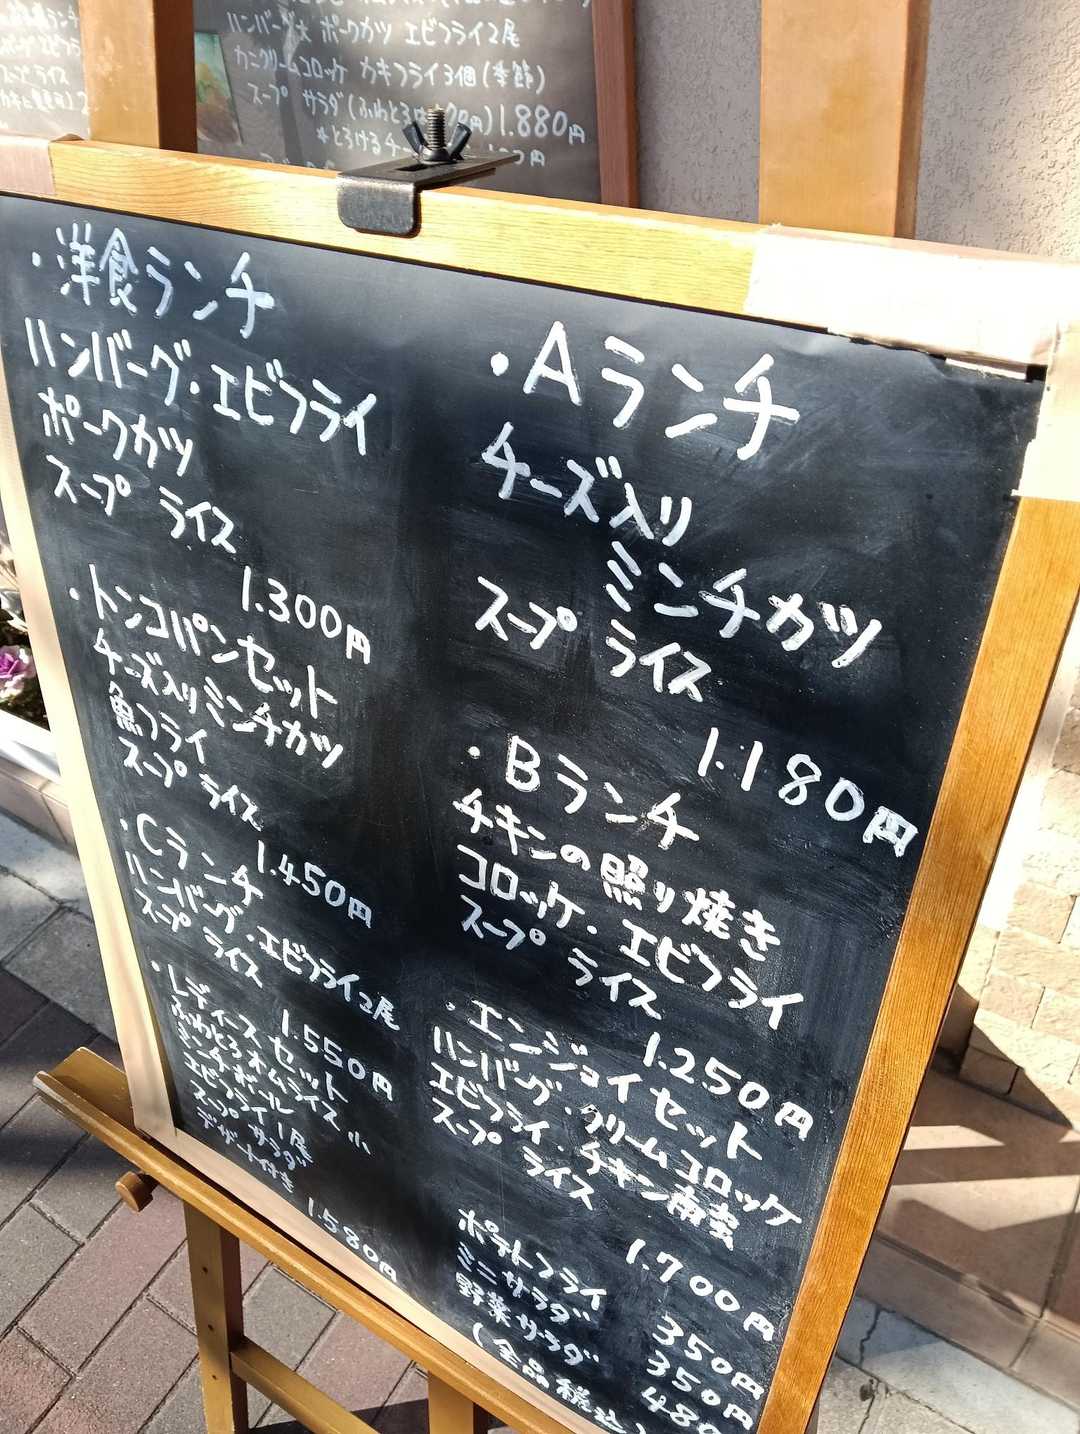 ハンバーグ大 ポークカツ エビフライ2尾
カニクリームコロッケ カキフライ3個(季節)
スープ サラダ(ふわとろ
1.880円
*とろける
スープ ライス
・洋食ランチ
ハンバーグ・エビフライ
ポークカツ
スープ ライス
1.300円
・トンコパンセット
チーズ入りミンチカツ
魚フライ
スープ ライス
1.450円
・Cランチ
ハンバーグ・エビフライ2尾
スープ ライス
1.550円
・Lディースセット
ふわとろオムライス小
ミンチボール
エビフライ1尾
スープ サラダ
デザート付き
1.580円
・Aランチ
チーズ入り
ミンチカツ
スープ ライス
1.180円
・Bランチ
チキンの照り焼き
コロッケ・エビフライ
スープ ライス
1.250円
・エンジョイセット
ハンバーグ・クリームコロッケ
エビフライ・チキン南蛮
スープ ライス
1.700円
ポテトフライ 350円
ミニサラダ 350円
野菜サラダ 480
(全品税込)